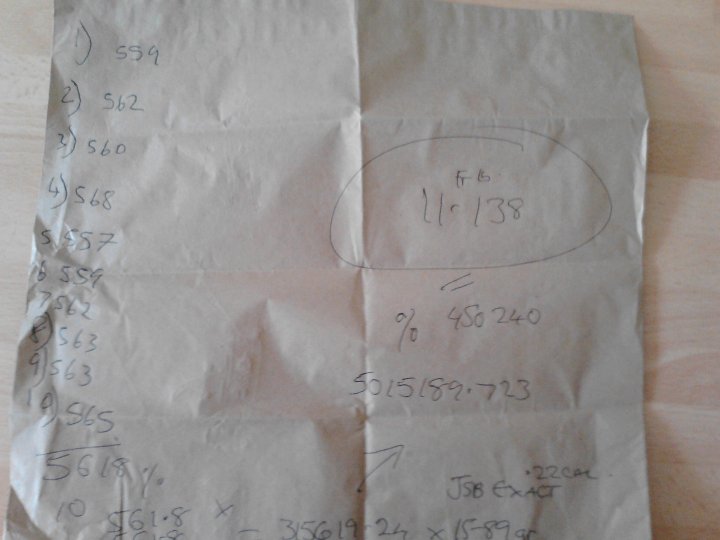 1) 559
2) 562
3) 560
4) 568
5 557
6 559
7 562
8) 563
9) 563
10) 565
5618 %
10 561.8 x
561.8 = 315619.24 x 15.89 gr
JSB EXACT .22 CAL
5015189.723
% 450240
=
ft lb
11.138